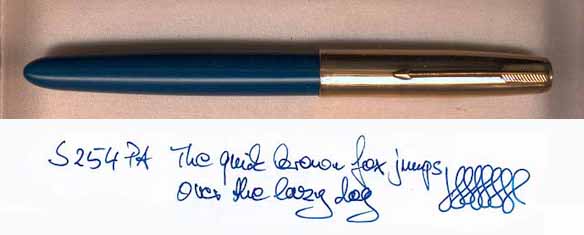 S254PA The quick brown fox jumps
over the lazy dog